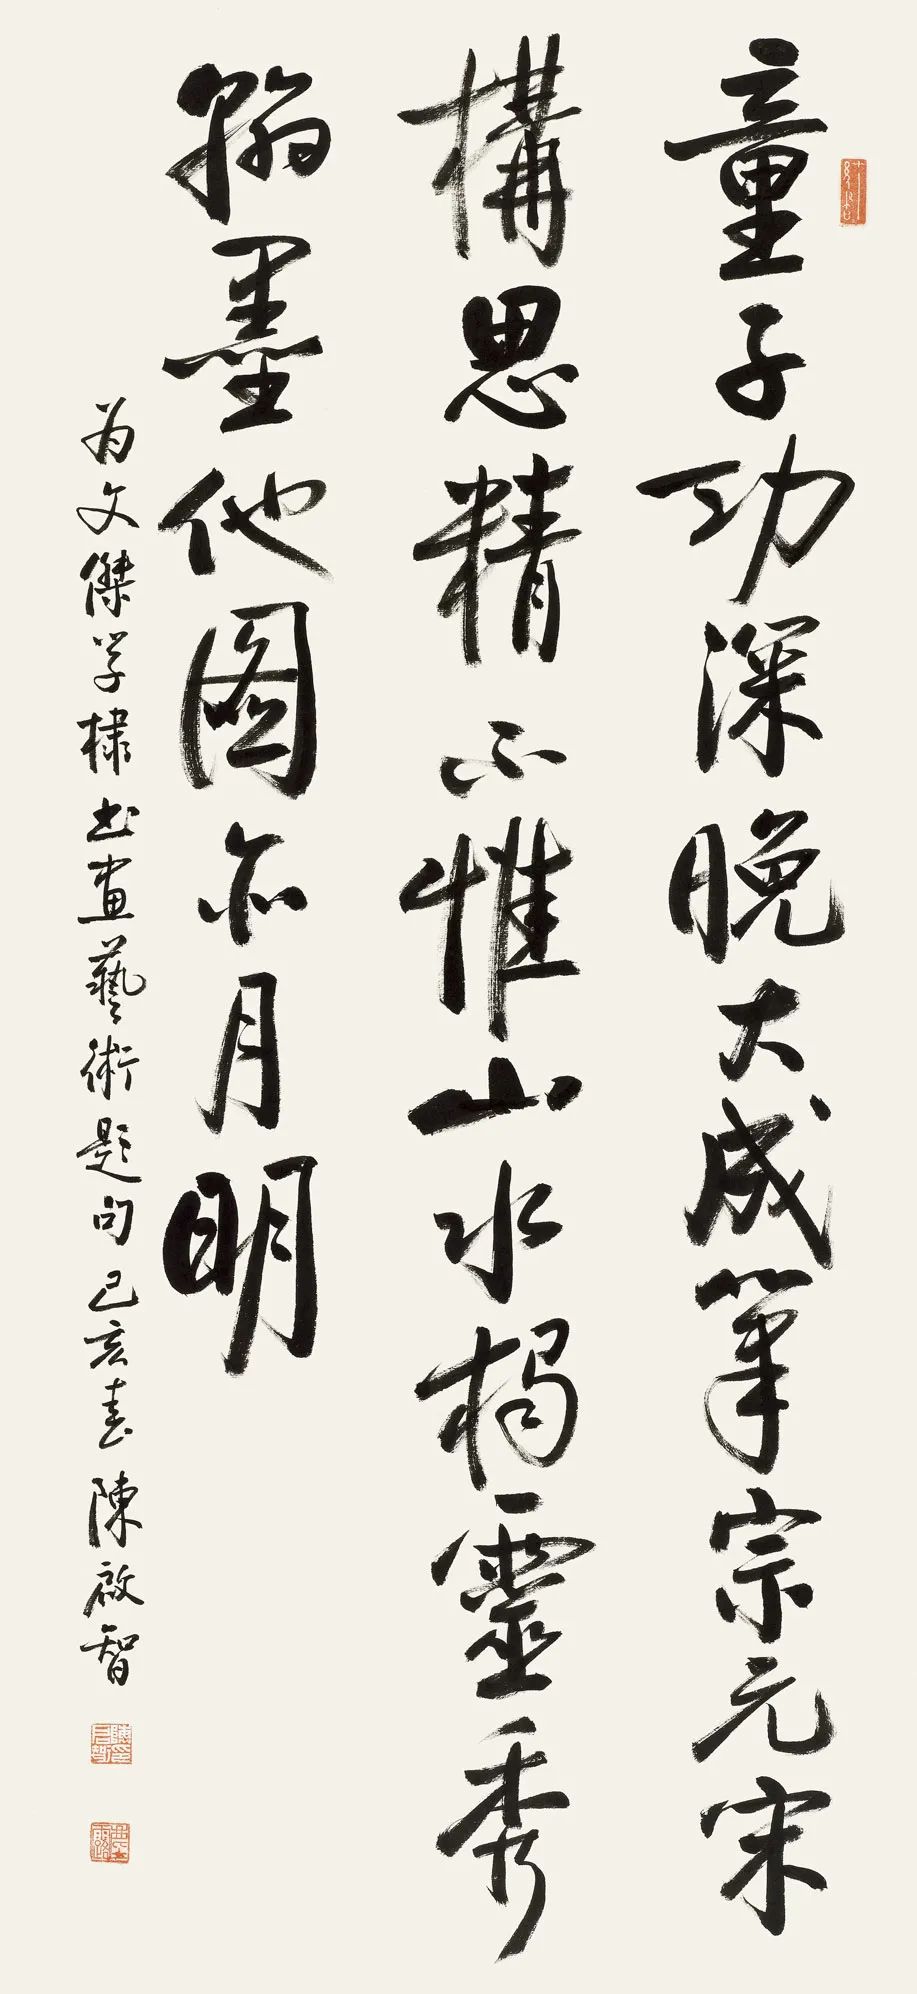 童子功深晚大成筆宗元宋
構思精不惟山水揭靈秀
翰墨他圖亦月明
为文傑学棣书畫藝術題句己亥春陳啟智